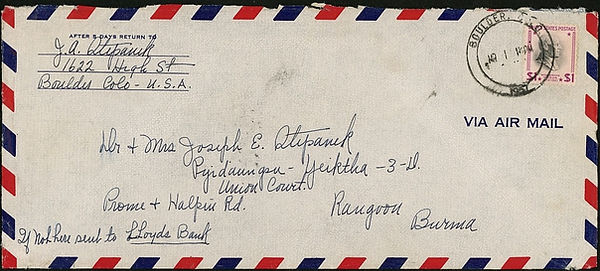 AFTER 5 DAYS RETURN TO
J. A. Stepanek
1622 High St
Boulder Colo - U.S.A.
BOULDER, COLO.
1957
UNITED STATES POSTAGE
$1 $1
VIA AIR MAIL
Dr & Mrs Joseph E. Stepanek
Pyidaungsu - Yeiktha - 3-D.
Union Court.
Prome & Halpin Rd.
Rangoon
Burma
If not here sent to LLoyds Bank